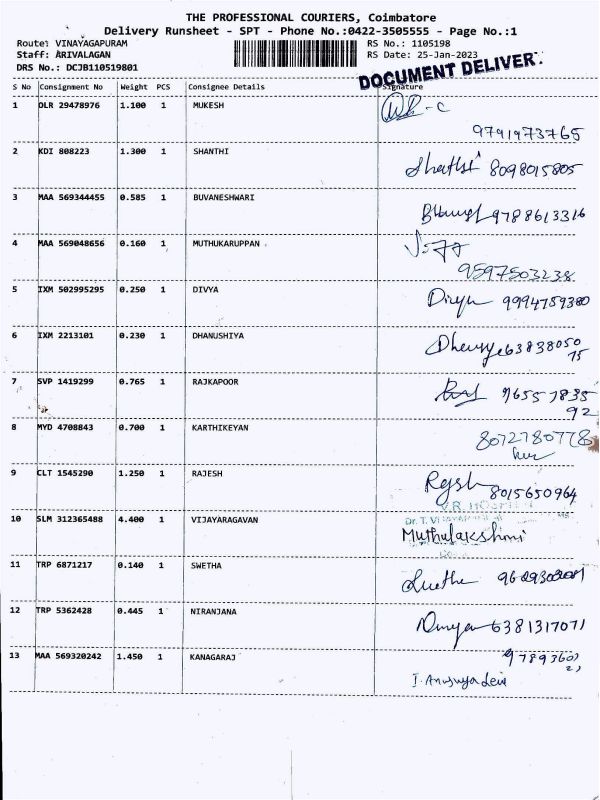 THE PROFESSIONAL COURIERS, Coimbatore
Delivery Runsheet - SPT - Phone No.:0422-3505555 - Page No.:1
Route: VINAYAGAPURAM RS No.: 1105198
Staff: ARIVALAGAN RS Date: 25-Jan-2023
DRS No.: DCJB110519801
DOCUMENT DELIVER
S No Consignment No Weight PCS Consignee Details Signature
1 DLR 29478976 1.100 1 MUKESH
9791973765
2 KDI 808223 1.300 1 SHANTHI 8098015805
3 MAA 569344455 0.585 1 BUVANESHWARI 9788613316
4 MAA 569048656 0.160 1 MUTHUKARUPPAN
9597503238
5 IXM 502995295 0.250 1 DIVYA Divya 9994759380
6 IXM 2213101 0.230 1 DHANUSHIYA 63838050
75
7 SVP 1419299 0.765 1 RAJKAPOOR Raj 96557835
92
8 MYD 4708843 0.700 1 KARTHIKEYAN 8072780778
9 CLT 1545290 1.250 1 RAJESH 8015650964
V.R. HOSPITAL
10 SLM 312365488 4.400 1 VIJAYARAGAVAN Muthulakshmi
11 TRP 6871217 0.140 1 SWETHA
12 TRP 5362428 0.445 1 NIRANJANA 6381317071
13 MAA 569320242 1.450 1 KANAGARAJ
I. Anusuya devi